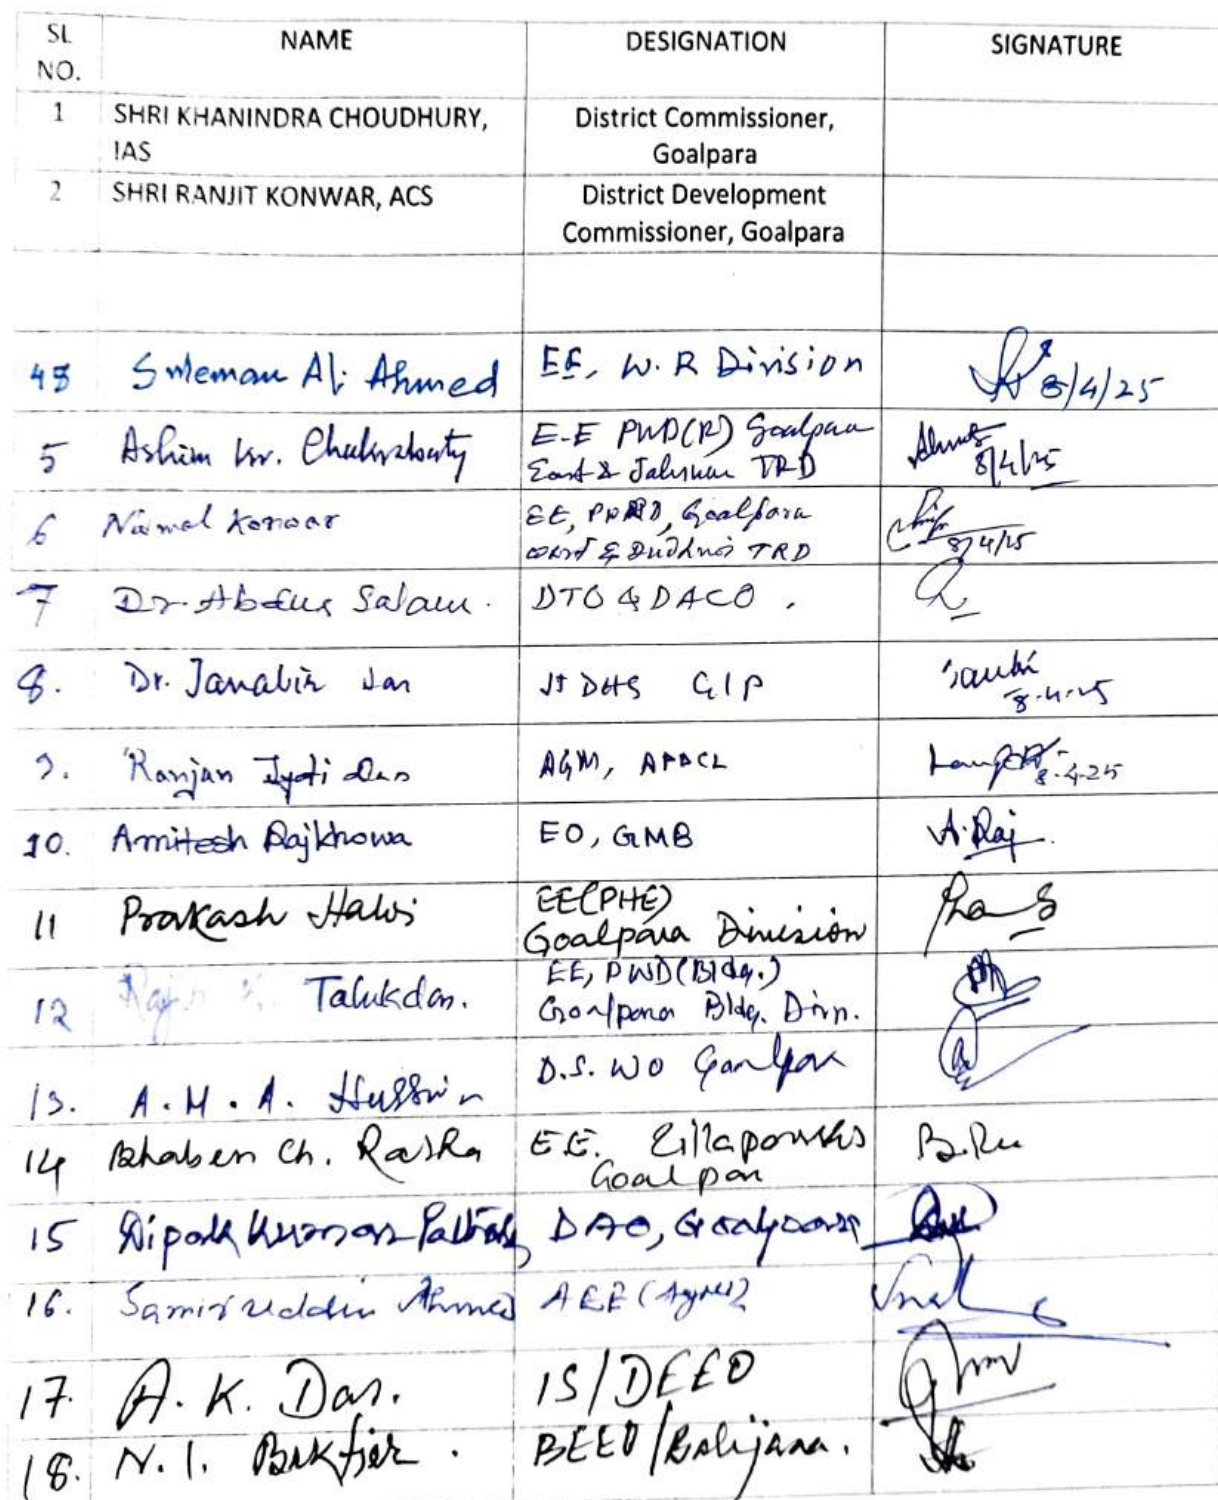 SL NO. NAME DESIGNATION SIGNATURE
1 SHRI KHANINDRA CHOUDHURY, IAS District Commissioner, Goalpara
2 SHRI RANJIT KONWAR, ACS District Development Commissioner, Goalpara
Suleman Ali Ahmed EE, W.R Division 8/4/25
5 Ashim Kr. Chakrabarty E-E PWD(R) Goalpara
East & TRD 8/4/25
6 Konwar EE, Goalpara
West & Dudhnoi TRD 8/4/25
7 Dr. Abdus Salam. DTO & DACO.
8. Dr. Jt DHS GLP 8-4-25
9. Ranjan Jyoti Das AGM, APDCL 8-4-25
10. Amitesh Rajkhowa EO, GMB A. Raj
11 Prakash Haloi EE(PHE)
Goalpara Division
12 Talukdar. EE, PWD(Bldg.)
Goalpara Bldg. Divn.
13. A. M. A. Hussain D.S.WO Goalpara
14 Bhaben Ch. Rabha E.E. Goalpara
15 Dipak Kumar DAO, Goalpara
16. Samiruddin Ahmed AEE (Agri)
17. A. K. Das. IS/DEEO
18. N. I. BEEO/Balijana.